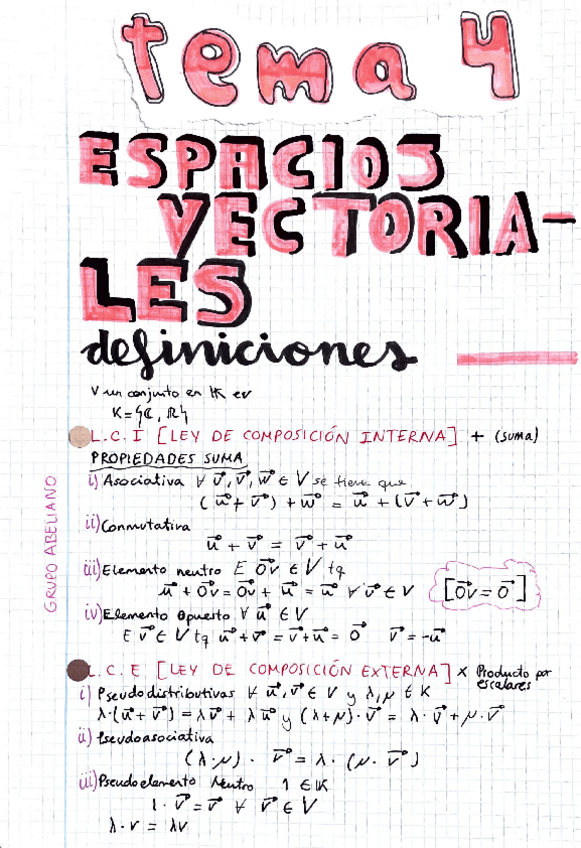 tema 4
ESPACIOS
VECTORIA-
LES
definiciones
V un conjunto en K ev
K = {C, R}
L.C.I [LEY DE COMPOSICIÓN INTERNA] + (suma)
PROPIEDADES SUMA
GRUPO ABELIANO
i) Asociativa ∀ u⃗, v⃗, w⃗ ∈ V se tiene que
(u⃗ + v⃗) + w⃗ = u⃗ + (v⃗ + w⃗)
ii) Conmutativa
u⃗ + v⃗ = v⃗ + u⃗
iii) Elemento neutro E 0⃗v ∈ V tq
u⃗ + 0⃗v = 0⃗v + u⃗ = u⃗ ∀ u⃗ ∈ V
[0⃗v = 0⃗]
iv) Elemento opuesto ∀ u⃗ ∈ V
E v⃗ ∈ V tq u⃗ + v⃗ = v⃗ + u⃗ = 0⃗ v⃗ = -u⃗
L.C.E [LEY DE COMPOSICIÓN EXTERNA] x Producto por
escalares
i) Pseudodistributivas ∀ u⃗, v⃗ ∈ V y λ, μ ∈ K
λ·(u⃗ + v⃗) = λv⃗ + λu⃗ y (λ+μ)·v⃗ = λ·v⃗ + μ·v⃗
ii) Pseudoasociativa
(λ·μ)·v⃗ = λ·(μ·v⃗)
iii) Pseudoelemento Neutro 1 ∈ K
1·v⃗ = v⃗ ∀ v⃗ ∈ V
λ·v = λv